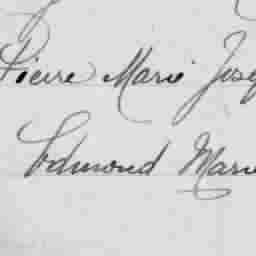 Pierre Marie Jose
Edmond Marie